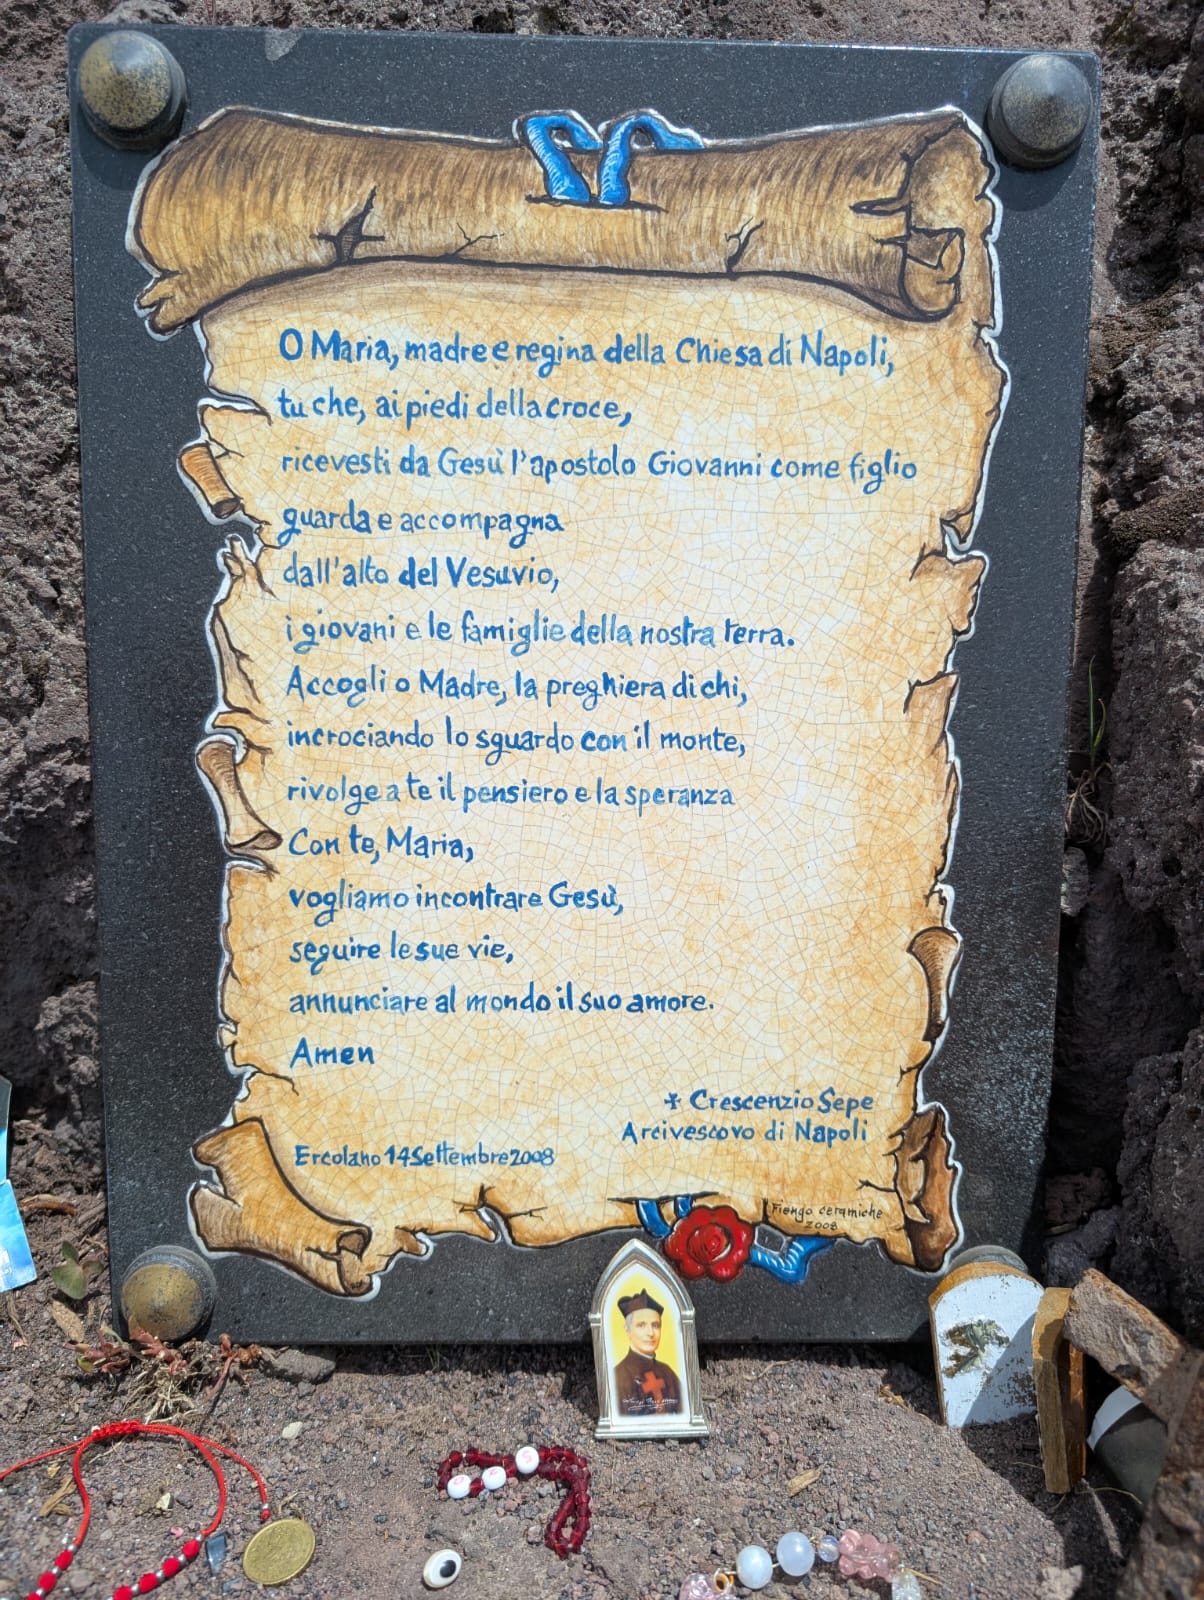 O Maria, madre e regina della Chiesa di Napoli,
tu che, ai piedi della croce,
ricevesti da Gesù l'apostolo Giovanni come figlio
guarda e accompagna
dall'alto del Vesuvio,
i giovani e le famiglie della nostra terra.
Accogli o Madre, la preghiera di chi,
incrociando lo sguardo con il monte,
rivolge a te il pensiero e la speranza
Con te, Maria,
vogliamo incontrare Gesù,
seguire le sue vie,
annunciare al mondo il suo amore.
Amen
✝ Crescenzio Sepe
Arcivescovo di Napoli
Ercolano 14 Settembre 2008
Fiengo ceramiche
2008